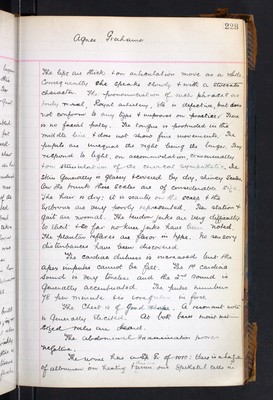 223
Agnes Grahame
The lips are thick & on articulation move as a whole
Consequently she speaks slowly & with a
character. The pronunciation of such phrases as
truly rural, Royal artillery, etc is defective, but does
not conform to any type & improves on practice. There
is no facial palsy. The tongue is protruded in the
middle line & does not show fine movements. The
pupils are unequal the right being the larger. They
respond to light, on accommodation, consensually
& on stimulation of the cervical sympathetic. The
Skin generally is glossy & covered by dry, shiny scales
On the trunk these scales are of considerable size.
The hair is dry: it is scanty on the scalp & the
eyebrows are very poorly represented. The station &
gait are normal. The tendon jerks are very difficult
to elicit & so far no knee jerks have been noted.
The plantar reflexes are flexor in type. No sensory
disturbances have been discovered
The cardiac dulness is increased but the
apex impulse cannot be felt. The 1st cardiac
sound is very toneless and the 2nd sound is
generally accentuated. The pulse numbers
78 per minute
The Chest is of good shape. A resonant note
is generally elicited. At both bases moist
sized rales are heard.
The abdominal examination proves
negative.
The urine has a of 1010: there is a haze
of albumen on heating & epithelial cells in